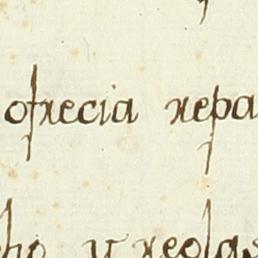 ofrecia repa
ho y reolas